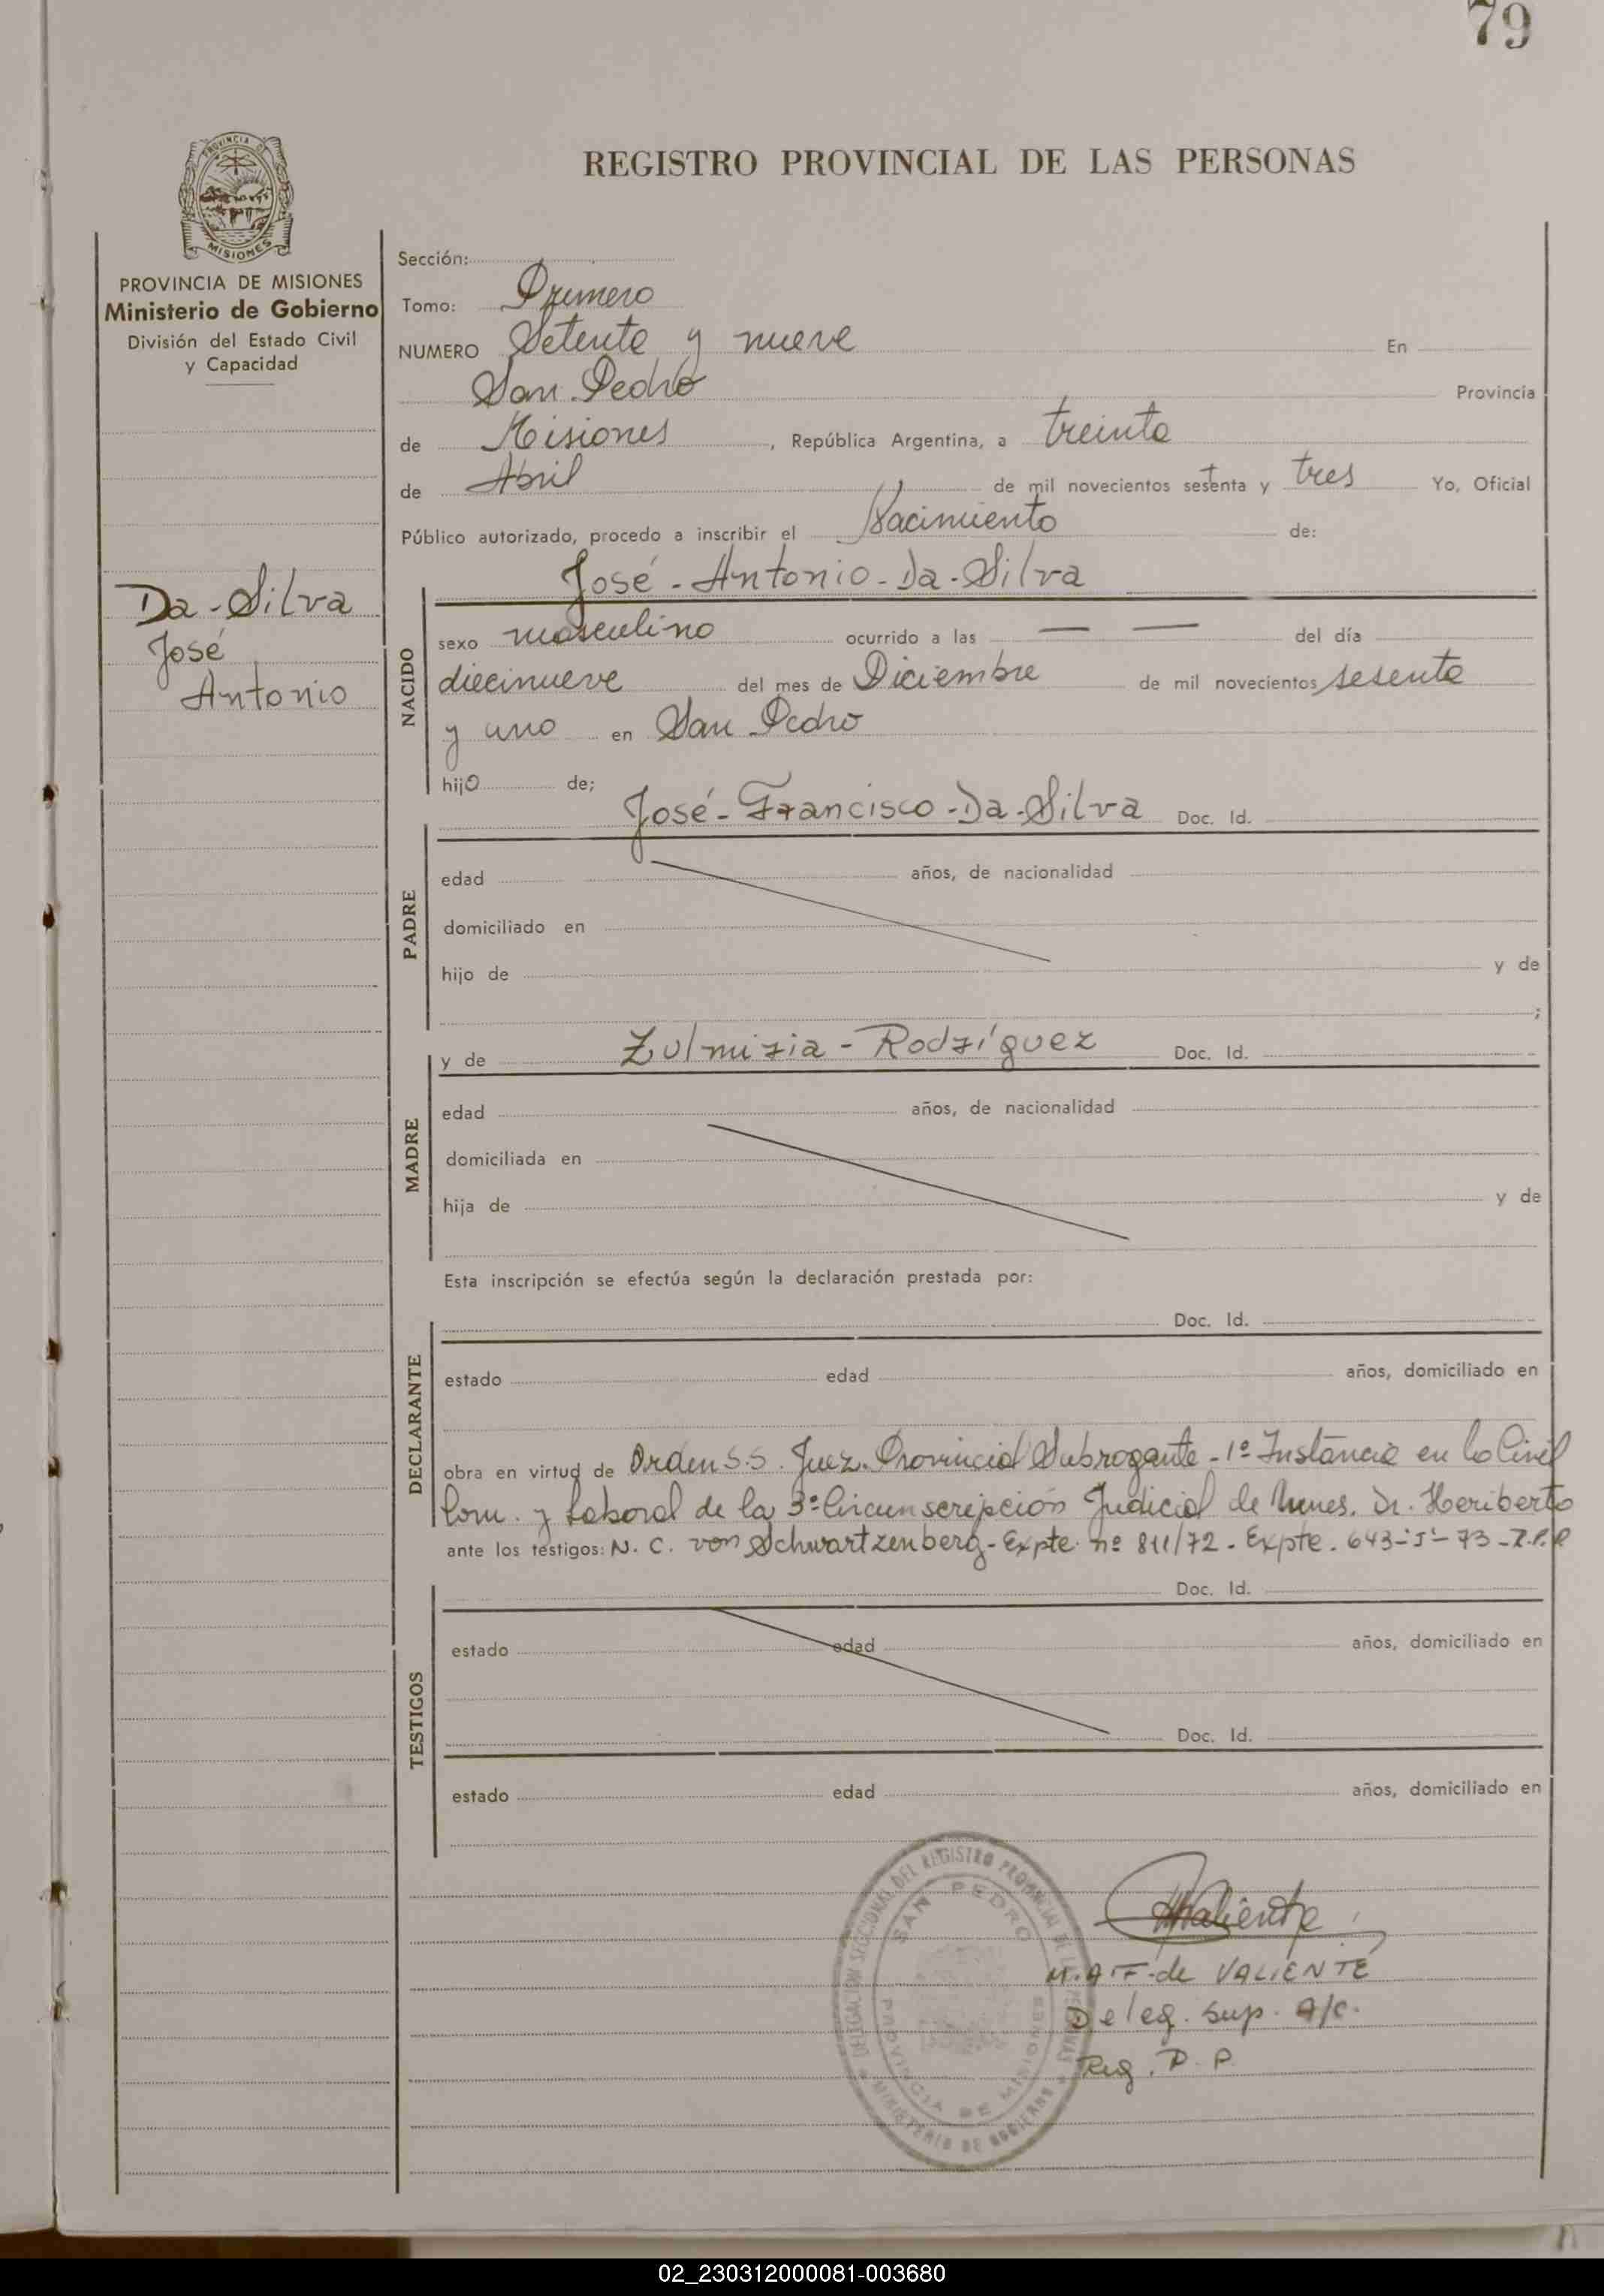 79
PROVINCIA DE
MISIONES
REGISTRO PROVINCIAL DE LAS PERSONAS
PROVINCIA DE MISIONES
Ministerio de Gobierno
División del Estado Civil
y Capacidad
Da-Silva
José
Antonio
Sección:
Tomo: Primero
NUMERO Setenta y nueve En
San Pedro Provincia
de Misiones, República Argentina, a treinta
de Abril de mil novecientos setenta y tres Yo, Oficial
Público autorizado, procedo a inscribir el Nacimiento de:
José-Antonio-Da-Silva
NACIDO
sexo masculino ocurrido a las — — del día
diecinueve del mes de Diciembre de mil novecientos sesenta
y uno en San Pedro
hijo de;
José-Francisco-Da-Silva Doc. Id.
PADRE
edad años, de nacionalidad
domiciliado en
hijo de y de
;
MADRE
y de Zulmiria-Rodríguez Doc. Id.
edad años, de nacionalidad
domiciliada en
hija de y de
Esta inscripción se efectúa según la declaración prestada por:
Doc. Id.
DECLARANTE
estado edad años, domiciliado en
obra en virtud de Orden S.S. Juez Provincial Subrogante-1º Instancia en lo Civil
Com. y Laboral de la 3º Circunscripción Judicial de Mnes. Dr. Heriberto
ante los testigos: N. C. von Schwartzenberg-Expte. nº 811/72-Expte. 643-J-73-R.P.P
Doc. Id.
TESTIGOS
estado edad años, domiciliado en
Doc. Id.
estado edad años, domiciliado en
DELEGACION SECCIONAL DEL REGISTRO PROVINCIAL DE LAS PERSONAS
SAN PEDRO
PROVINCIA DE MISIONES
MINISTERIO DE GOBIERNO
Valiente
M.A.F. de VALIENTE
Deleg. sup. a/c.
Reg. P. P.
02_230312000081-003680